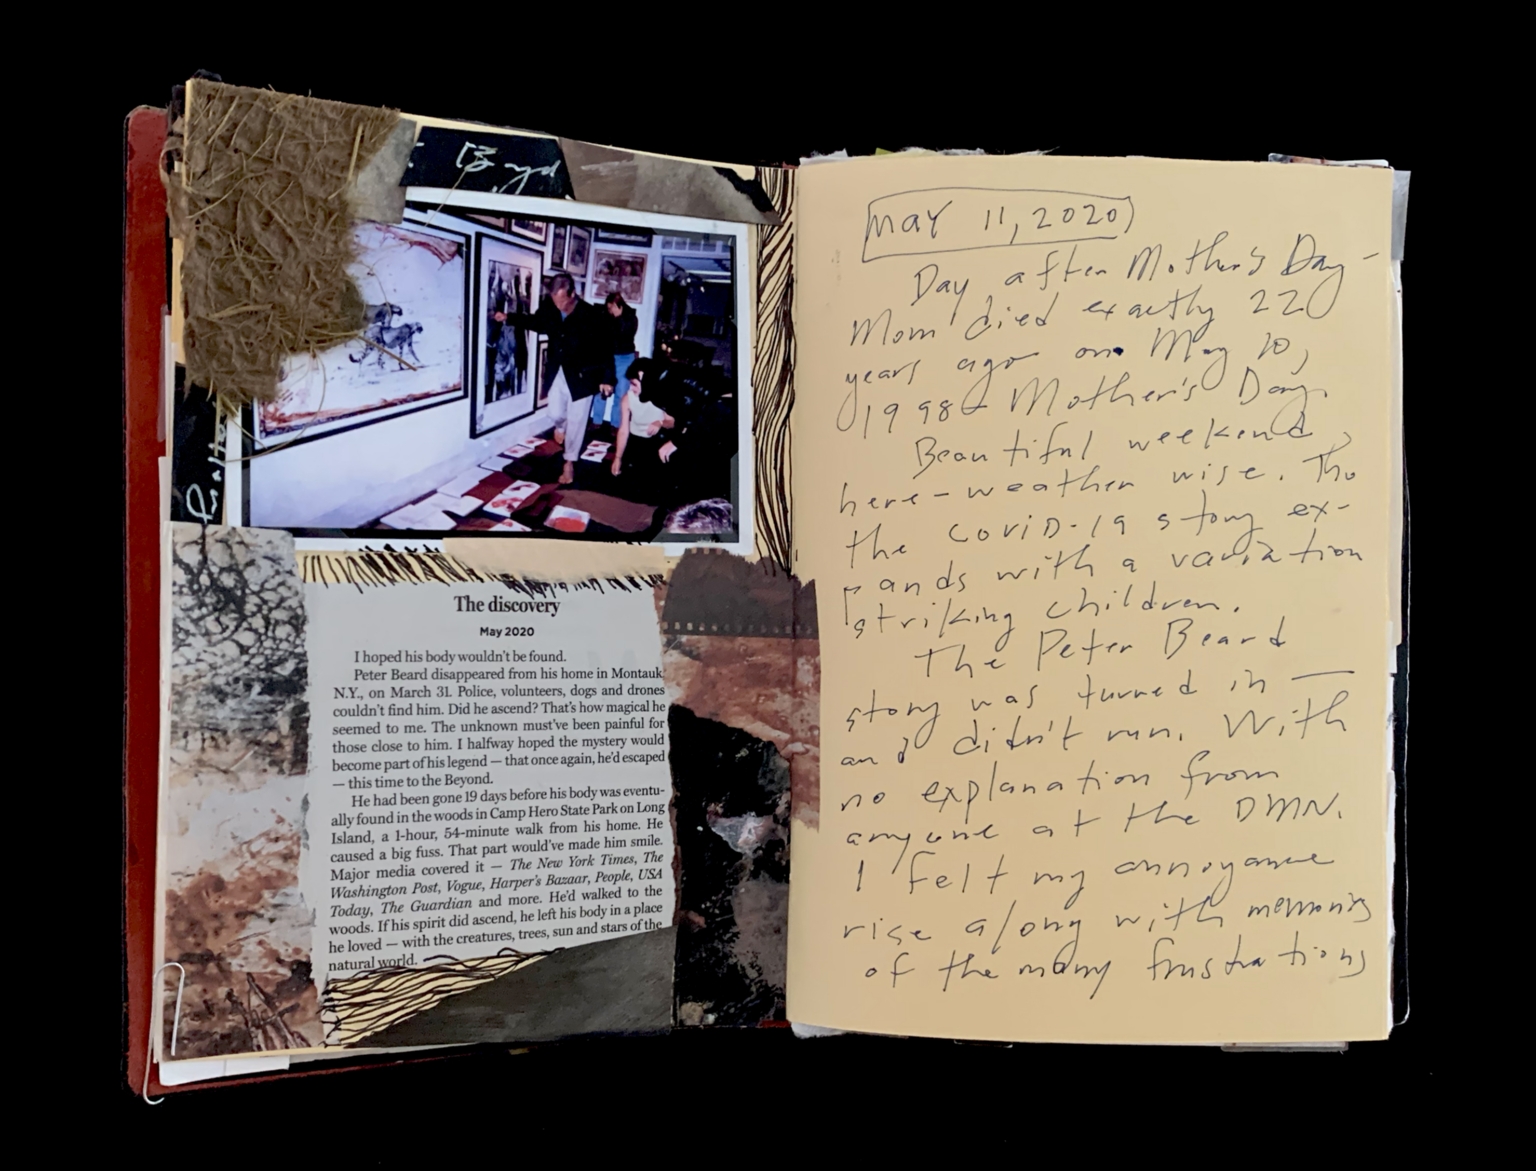 Boyd
The discovery
May 2020
I hoped his body wouldn't be found.
Peter Beard disappeared from his home in Montauk
N.Y., on March 31. Police, volunteers, dogs and drones
couldn't find him. Did he ascend? That's how magical he
seemed to me. The unknown must've been painful for
those close to him. I halfway hoped the mystery would
become part of his legend — that once again, he'd escaped
— this time to the Beyond.
He had been gone 19 days before his body was eventu-
ally found in the woods in Camp Hero State Park on Long
Island, a 1-hour, 54-minute walk from his home. He
caused a big fuss. That part would've made him smile.
Major media covered it — The New York Times, The
Washington Post, Vogue, Harper's Bazaar, People, USA
Today, The Guardian and more. He'd walked to the
woods. If his spirit did ascend, he left his body in a place
he loved — with the creatures, trees, sun and stars of the
natural world.
MAY 11, 2020
Day after Mother's Day -
Mom died exactly 22
years ago on May 10,
1998 - Mother's Day.
Beautiful weekend
here - weather wise. Tho
the COVID-19 story ex-
pands with a variation
striking children.
The Peter Beard
story was turned in —
and didn't run. With
no explanation from
anyone at the DMN.
I felt my annoyance
rise along with memories
of the many frustrations